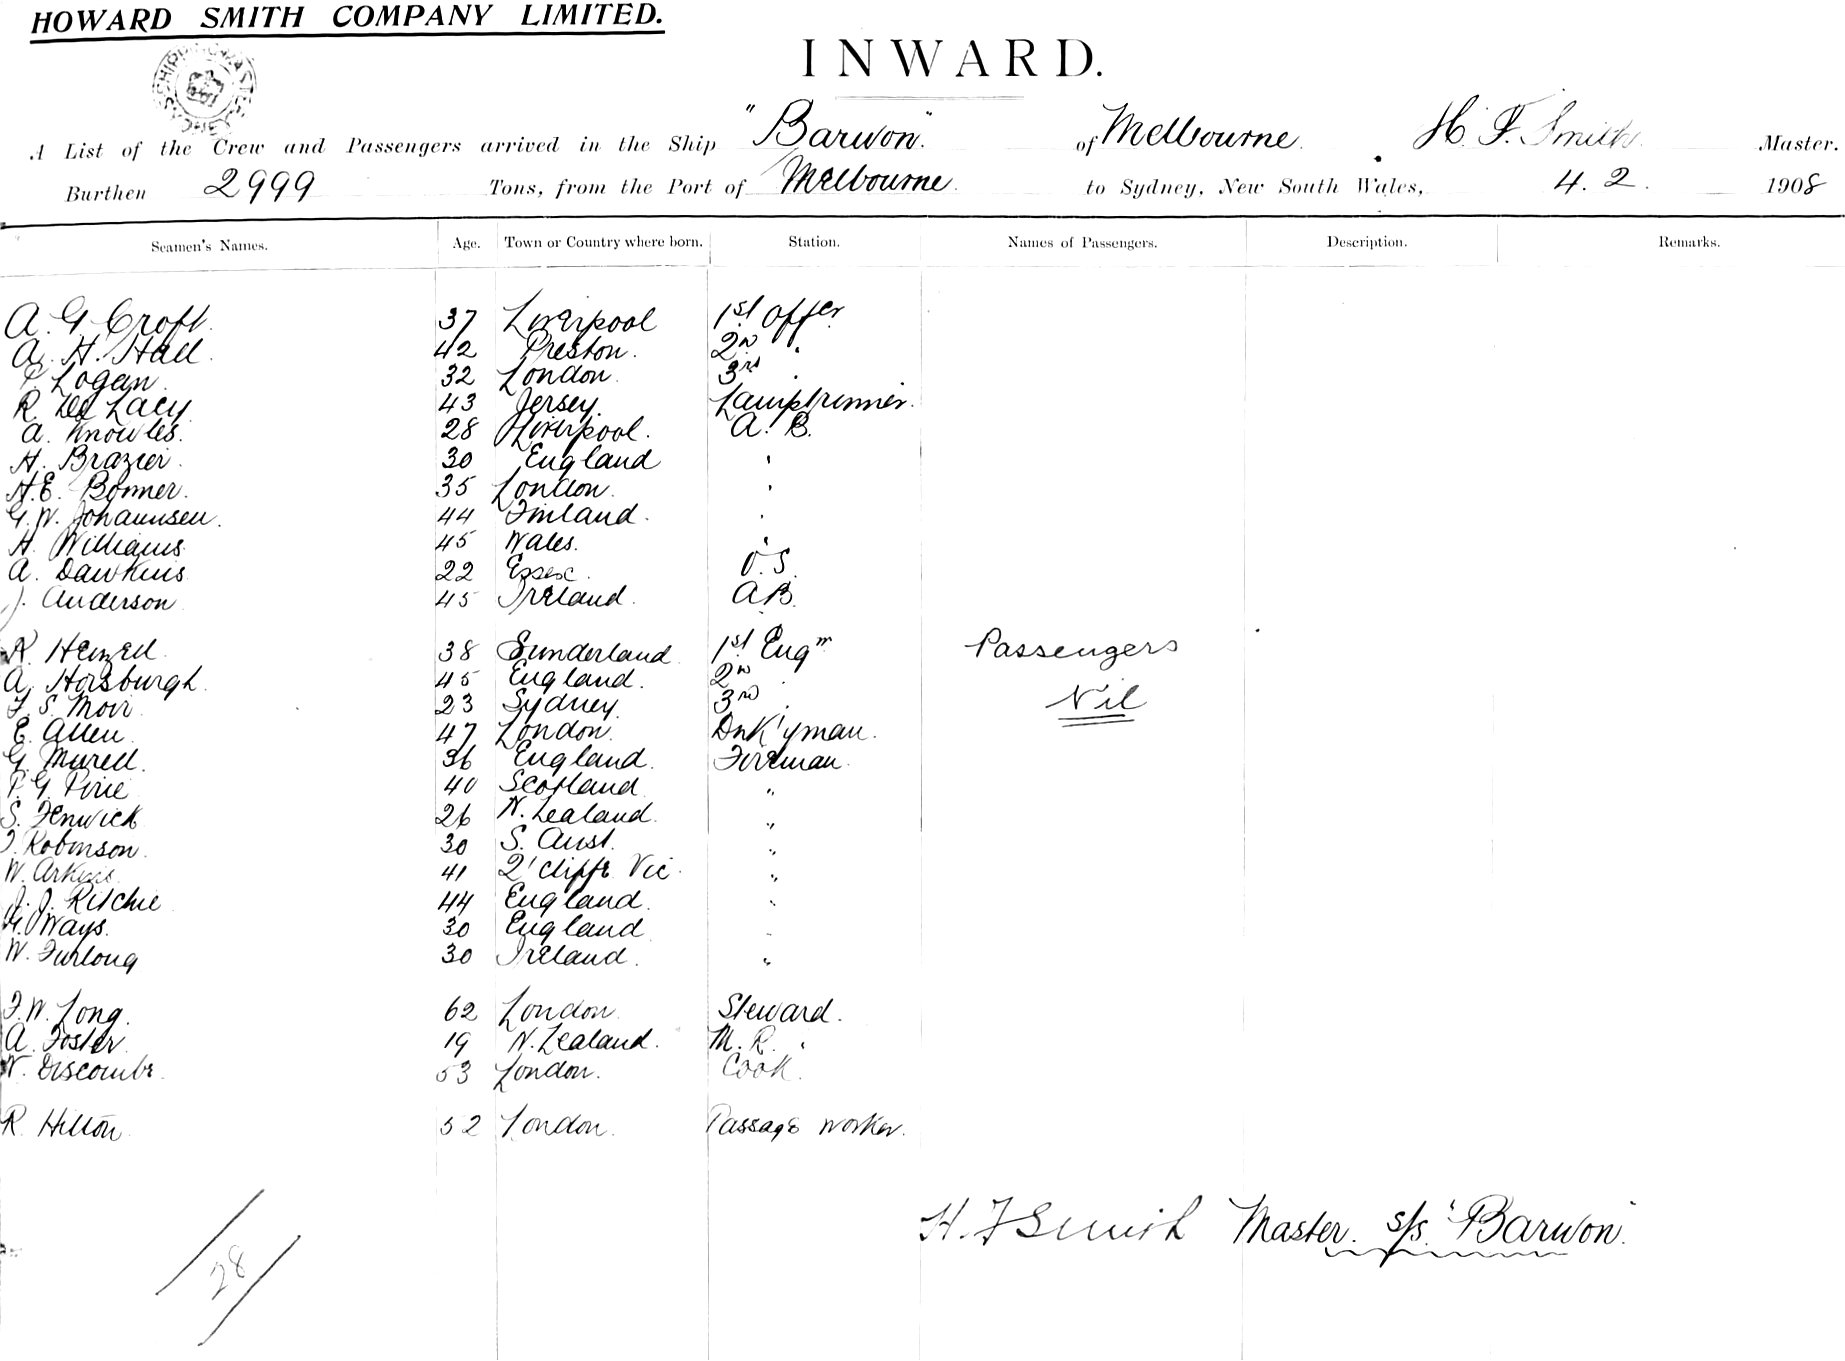 HOWARD SMITH COMPANY LIMITED.
INWARD.
A List of the Crew and Passengers arrived in the Ship "Barwon" of Melbourne H. F. Smith Master.
Burthen 2999 Tons, from the Port of Melbourne to Sydney, New South Wales, 4. 2. 1908
Seamen's Names. Age. Town or Country where born. Station. Names of Passengers. Description. Remarks.
A. G. Croft. 37 Liverpool 1st Offer
A. H. Hall. 42 Preston. 2nd "
Logan. 32 London. 3rd "
R. De Lacy. 43 Jersey. Lamptrimmer.
A. Knowles. 28 Liverpool. A. B.
H. Brazier. 30 England "
H. E. Bonner. 35 London. "
G. W. Johannsen. 44 Finland. "
H. Williams. 45 Wales. "
A. Dawkins. 22 Essex. O. S.
J. Anderson 45 Ireland. A.B.
R. Henzell 38 Sunderland 1st Engr Passengers
A. Horsburgh. 45 England. 2nd "
F. S. Moir. 23 Sydney 3rd " Nil
E. Allen. 47 London. Dnk'yman.
G. Murell. 36 England. Fireman.
P. G. Pirie 40 Scotland "
S. Fenwick 26 N. Zealand. "
T. Robinson. 30 S. Aust. "
W. Arkins. 41 Q'cliffe Vic. "
J. J. Ritchie 44 England. "
G. Ways. 30 England "
W. Furlong 30 Ireland. "
F. W. Long. 62 London. Steward.
A. Foster. 19 N. Zealand. M. R. "
W. Discombe. 53 London. Cook.
R. Hilton. 52 London. Passage worker.
H. F Smith Master. s/s. "Barwon"
28